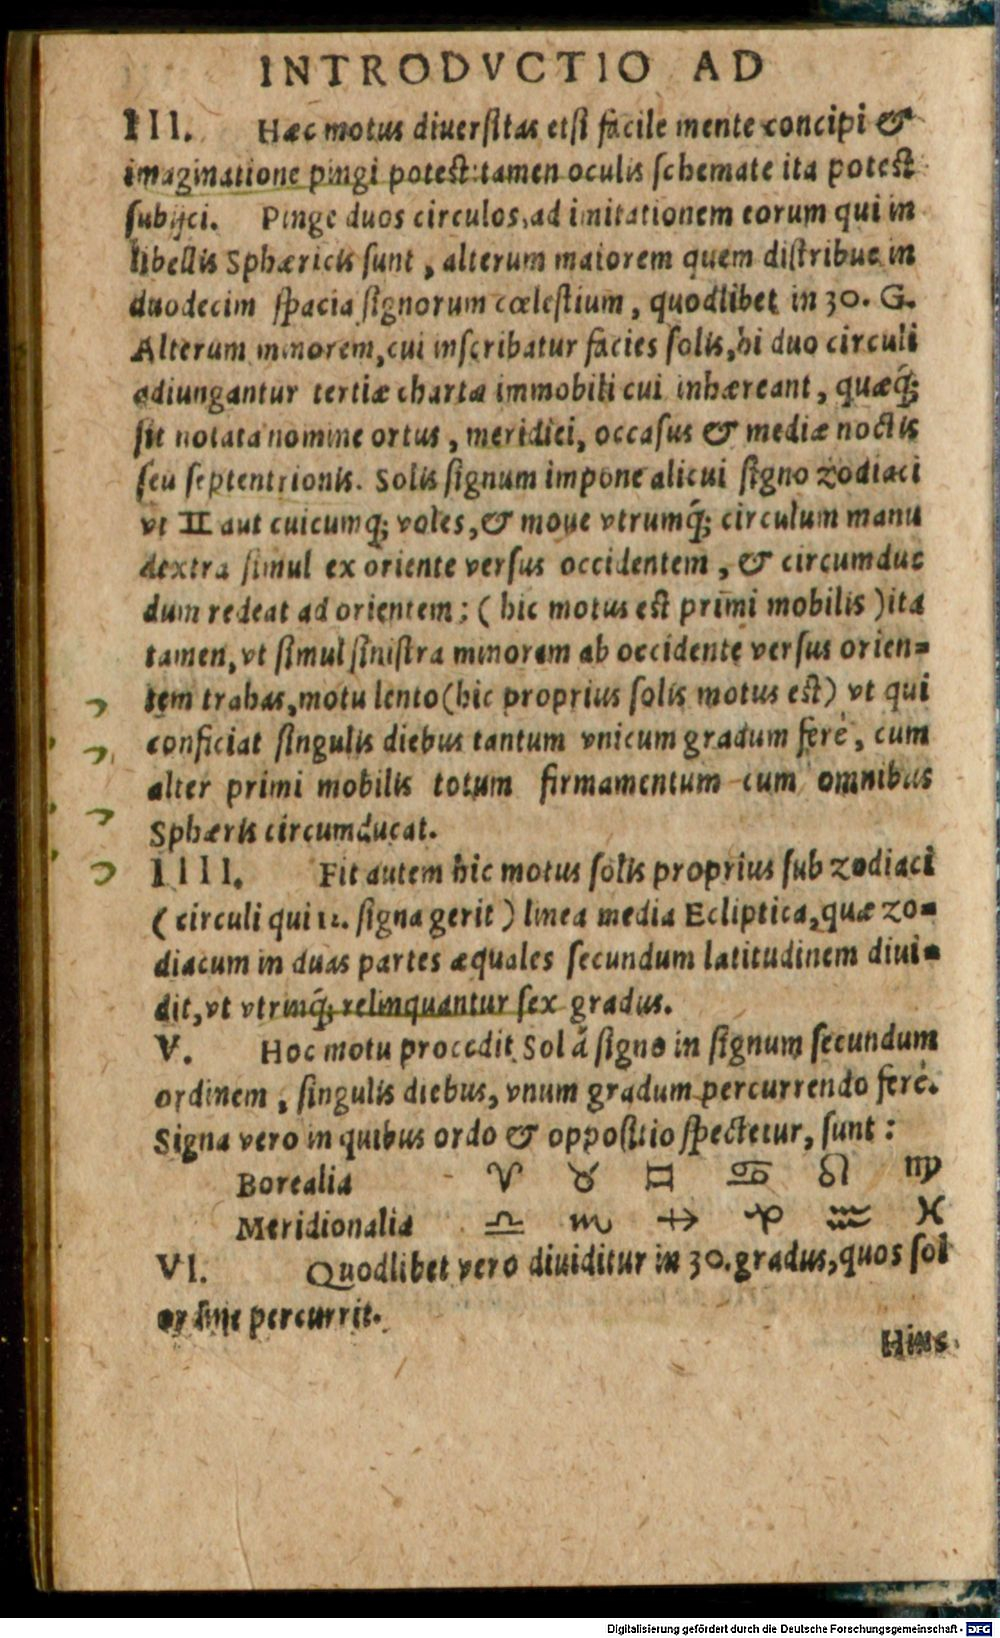 INTRODVCTIO AD
III. Hæc motus diuerſitas etſi facile mente concipi &
imaginatione pingi poteſt: tamen oculis ſchemate ita poteſt
ſubijci. Pinge duos circulos, ad imitationem eorum qui in
libellis Sphæricis ſunt, alterum maiorem quem diſtribue in
duodecim ſpacia ſignorum cœleſtium, quodlibet in 30. G.
Alterum minorem, cui inſcribatur facies ſolis, hi duo circuli
adiungantur tertiæ chartæ immobili cui inhæreant, quæq́;
ſit notata nomine ortus, meridiei, occaſus & mediæ noctis
ſeu ſeptentrionis. Solis ſignum impone alicui ſigno zodiaci
vt ♊ aut cuicumq; voles, & moue vtrumq́; circulum manu
dextra ſimul ex oriente verſus occidentem, & circumduc
dum redeat ad orientem; (hic motus eſt primi mobilis) ita
tamen, vt ſimul ſiniſtra minorem ab occidente verſus orien-
tem trahas, motu lento (hic proprius ſolis motus eſt) vt qui
conficiat ſingulis diebus tantum vnicum gradum ferè, cum
alter primi mobilis totum firmamentum cum omnibus
Sphæris circumducat.
IIII. Fit autem hic motus ſolis proprius ſub zodiaci
(circuli qui 12. ſigna gerit) linea media Ecliptica, quæ zo-
diacum in duas partes æquales ſecundum latitudinem diui-
dit, vt vtrinq́; relinquantur ſex gradus.
V. Hoc motu procedit Sol à ſigno in ſignum ſecundum
ordinem, ſingulis diebus, vnum gradum percurrendo ferè.
Signa vero in quibus ordo & oppoſitio ſpectetur, ſunt:
Borealia ♈ ♉ ♊ ♋ ♌ ♍
Meridionalia ♎ ♏ ♐ ♑ ♒ ♓
VI. Quodlibet vero diuiditur in 30. gradus, quos ſol
ordine percurrit.
Hinc
Digitalisierung gefördert durch die Deutsche Forschungsgemeinschaft - DFG